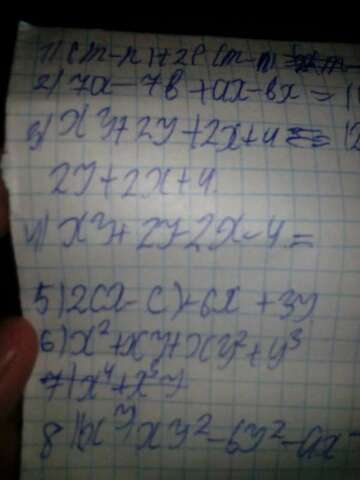 1) (m-n)+2p(m-n)=
2) 7a-7b+ax-bx=
3) xy+2y+2x+4=
2y+2x+4
4) xy+2y-2x-4=
5) 2(x-c)+6x+3y
6) x²+xy+xy²+y³
7) x⁴+x³y
8) xy²-by²-ax